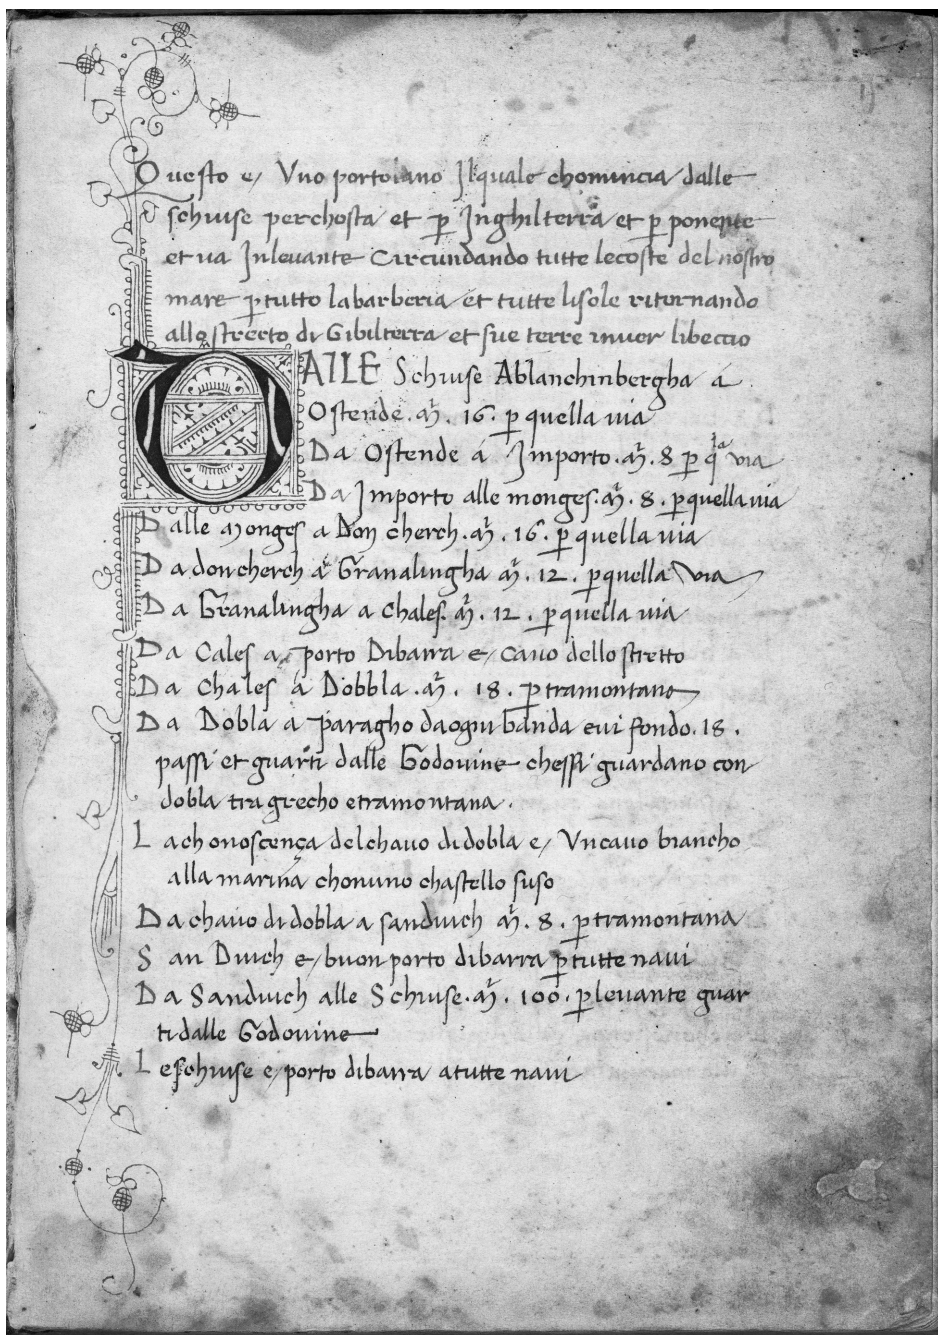 Questo e, Vno portolano Ilquale chomincia dalle
schiuse perchosta et p Inghilterra et p ponente
et ua Inleuante Circundando tutte lecoste del nostro
mare p tutto labarberia et tutte lisole ritornando
allo strecto di Gibilterra et sue terre inuer libeccio
DALLE Schiuse Ablanchinbergha a
Ostende .mª. 16. p quella uia
Da Ostende a Importo .mª. 8 p qla via
Da Importo alle monges .mª. 8. p quella uia
Dalle monges a Don cherch .mª. 16. p quella uia
Da doncherch a Granalingha mª. 12. p quella via
Da Granalingha a Chales. mª. 12. p quella uia
Da Cales a, porto Dibarra e, cauo dello stretto
Da Chales a Dobbla .mª. 18. p tramontano
Da Dobla a paragho daogni banda eui fondo. 18.
passi et guarti dalle Godouine chessi guardano con
dobla tra grecho etramontana.
Lachonoscença delchauo didobla e, Vncauo biancho
alla marina chonuno chastello suso
Da chauo di dobla a sanduich mª. 8. p tramontana
San Duich e, buon porto dibarra p tutte naui
Da Sanduich alle Schiuse .mª. 100. p leuante guar
ti dalle Godouine
Leschiuse e, porto dibarra atutte naui